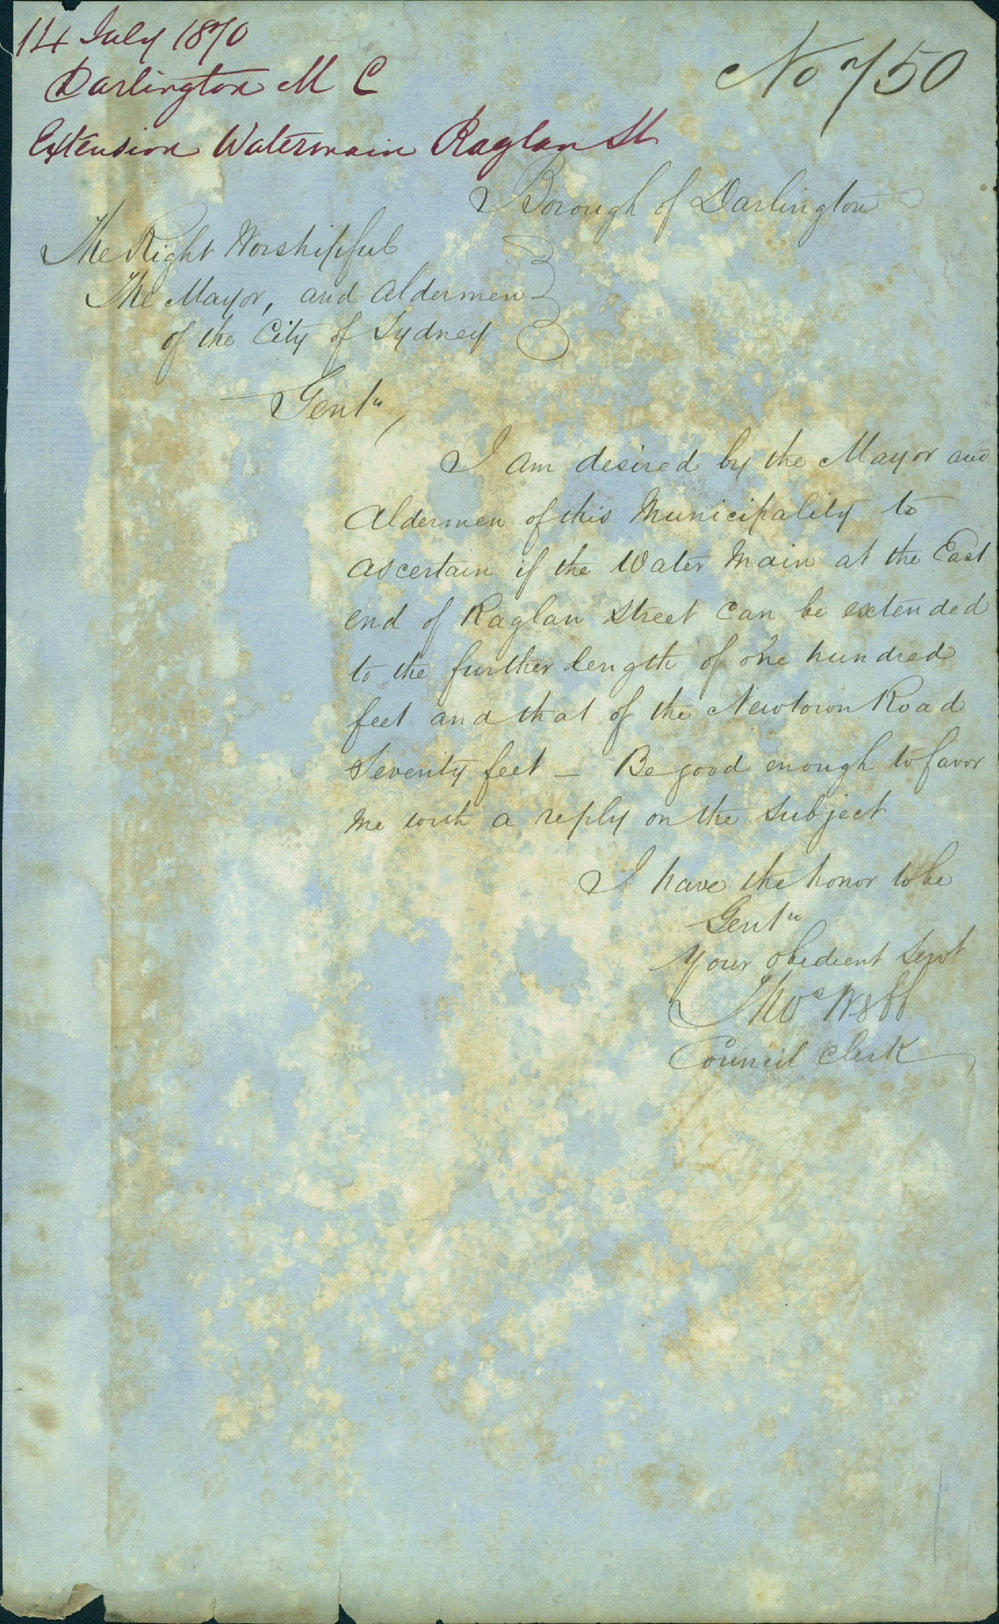 14 July 1870
Darlington M C
Extension Watermain Raglan St
No 750
Borough of Darlington
The Right Worshipful
The Mayor, and Aldermen
of the City of Sydney
Gentn,
I am desired by the Mayor and
Aldermen of this Municipality to
ascertain if the Water Main at the East
end of Raglan Street can be extended
to the further length of one hundred
feet and that of the Newtown Road
Seventy feet – Be good enough to favor
me with a reply on the subject
I have the honor to be
Gentn
Your obedient Servt
Thos Webb
Council Clerk